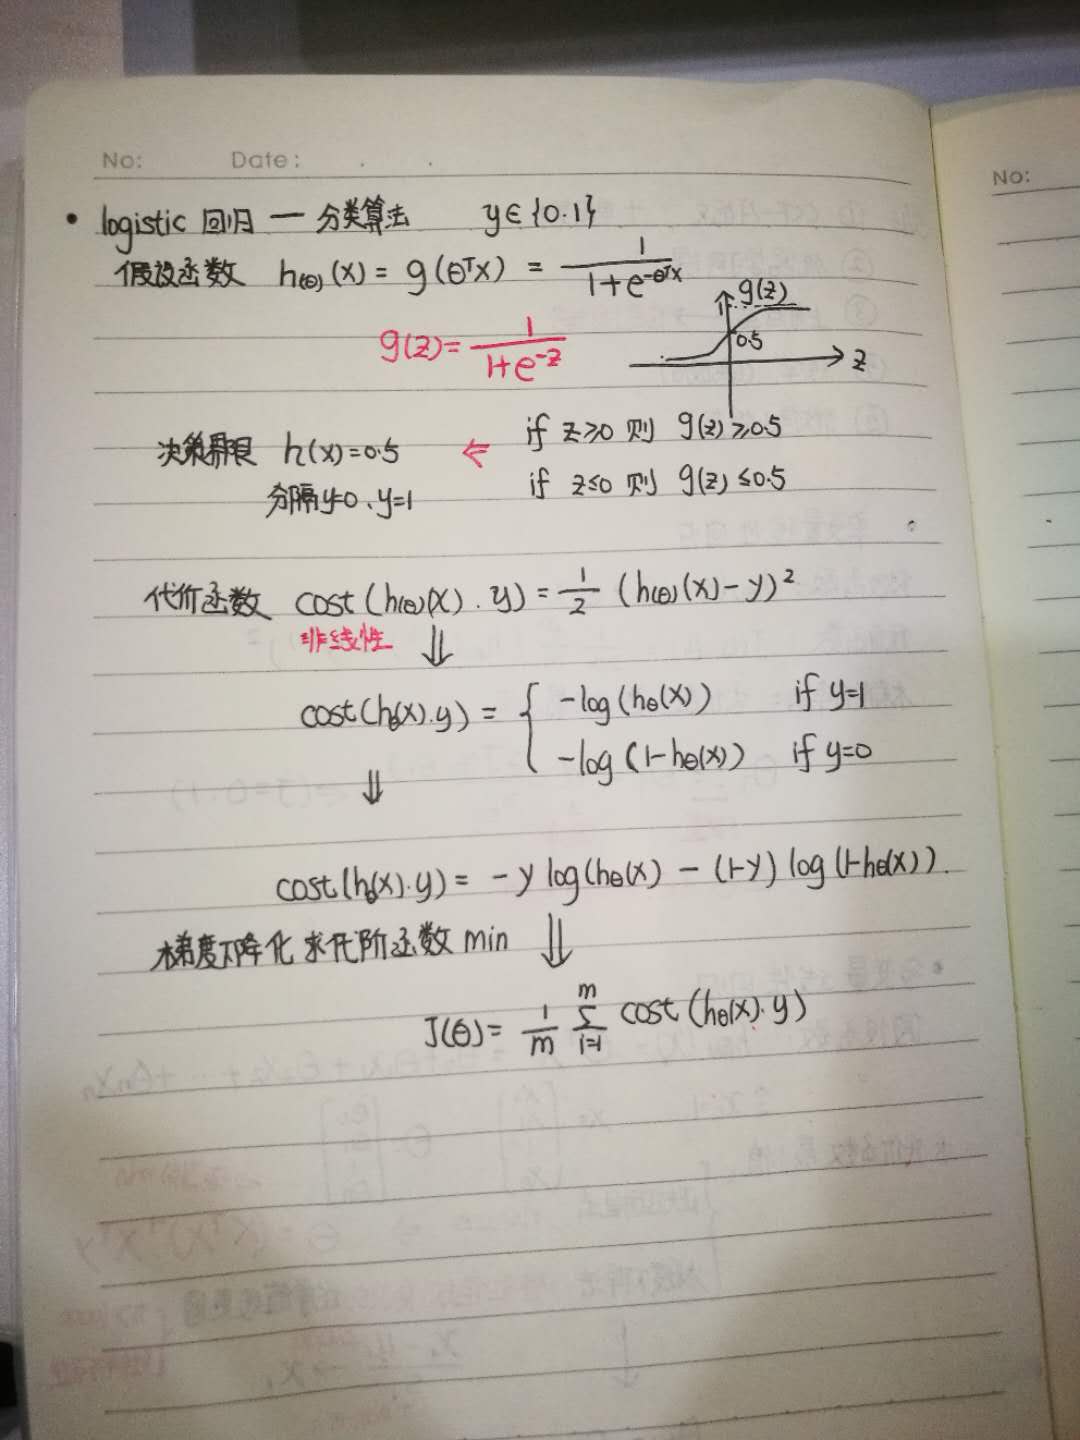 No: Date:
No:
• logistic 回归 — 分类算法 y∈{0.1}
假设函数 h(θ)(x) = g(θᵀx) = 1/(1+e^(-θᵀx))
g(z)
0.5
z
g(z) = 1/(1+e^(-z))
决策界限 h(x)=0.5 ← if z≥0 则 g(z)≥0.5
分隔y=0、y=1 if z≤0 则 g(z)≤0.5
代价函数 cost(h(θ)(x).y) = 1/2 (h(θ)(x)-y)²
非线性 ⇓
cost(hθ(x).y) = { -log(hθ(x)) if y=1
-log(1-hθ(x)) if y=0
⇓
cost(hθ(x).y) = -y log(hθ(x) - (1-y) log(1-hθ(x)).
梯度下降化 求代阶函数 min ⇓
J(θ) = 1/m Σ_(i=1)^m cost(hθ(x).y)